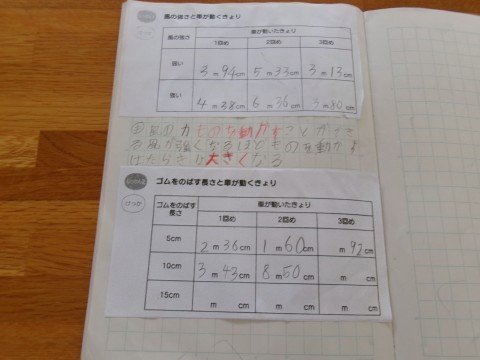 風の強さと車が動くきょり
風の強さ 車が動いたきょり
1回め 2回め 3回め
弱い 3m94cm 5m33cm 3m13cm
強い 4m38cm 6m36cm 3m80cm
風の力 ものを動かすことができ
る風が強くなるほどものを動かす
はたらきは大きくなる
ゴムをのばす長さと車が動くきょり
けっか
ゴムをのばす長さ 車が動いたきょり
1回め 2回め 3回め
5cm 2m36cm 1m60cm m92cm
10cm 3m43cm 8m50cm m cm
15cm m cm m cm m cm